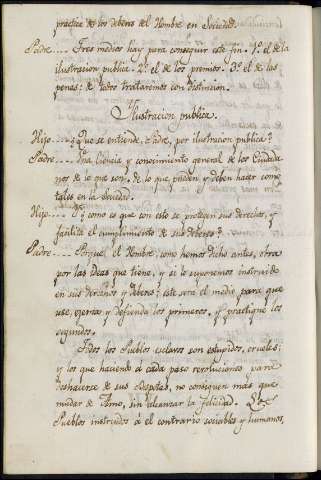 practica de los deberes del Hombre en Sociedad.
Padre.... Tres medios hay para conseguir este fin. 1º. el de la
ilustracion publica. 2º. el de los premios. 3º. el de las
penas: de todos trataremos con distincion.
Ilustracion publica.
Hijo.... ¿Que se entiende, Padre, por ilustracion publica?
Padre.... Una Ciencia y conocimiento general de los Ciudada-
nos de lo que son, de lo que pueden y deben hacer como
tales en la Sociedad.
Hijo.... Y como es que con esto se protegen sus derechos, y
facilita el cumplimiento de sus deberes?
Padre.... Porque el Hombre, como hemos dicho antes, obra
por las ideas que tiene, y si le suponemos instruido
en sus derechos y deberes; este será el medio para que
use, exerza y defienda los primeros, y practique los
segundos.
Todos los Pueblos esclavos son estupidos, crueles;
y los que haciendo á cada paso revoluciones para
deshacerse de sus despotas, no consiguen más que
mudar de Amo, sin alcanzar la felicidad. Los
Pueblos instruidos á el contrario sociables y humanos,